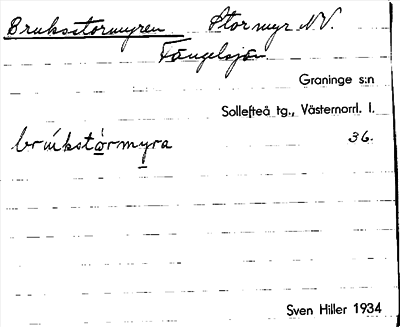 Bruksstormyren Stormyr N.V.
Fängelsjön
Graninge s:n
Sollefteå tg., Västernorrl. l.
brúkstòrmyra 36.
Sven Hiller 1934